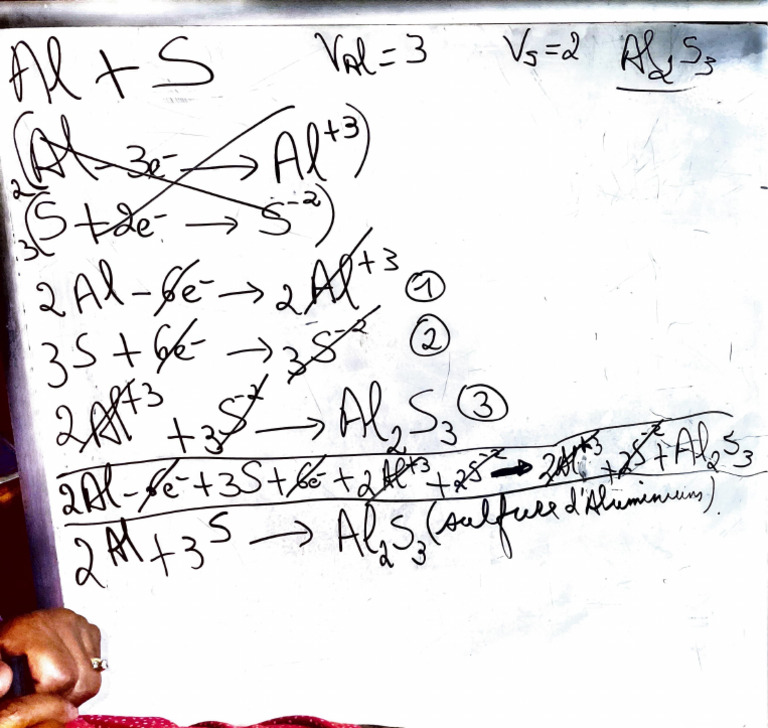 Al + S V_Al = 3 V_S = 2 Al₂S₃
2(Al - 3e⁻ → Al⁺³)
3(S + 2e⁻ → S⁻²)
2Al - 6e⁻ → 2Al⁺³ ①
3S + 6e⁻ → 3S⁻² ②
2Al⁺³ + 3S⁻² → Al₂S₃ ③
2Al - 6e⁻ + 3S + 6e⁻ + 2Al⁺³ + 3S⁻² → 2Al⁺³ + 3S⁻² + Al₂S₃
2Al + 3S → Al₂S₃ (sulfure d'Aluminium).